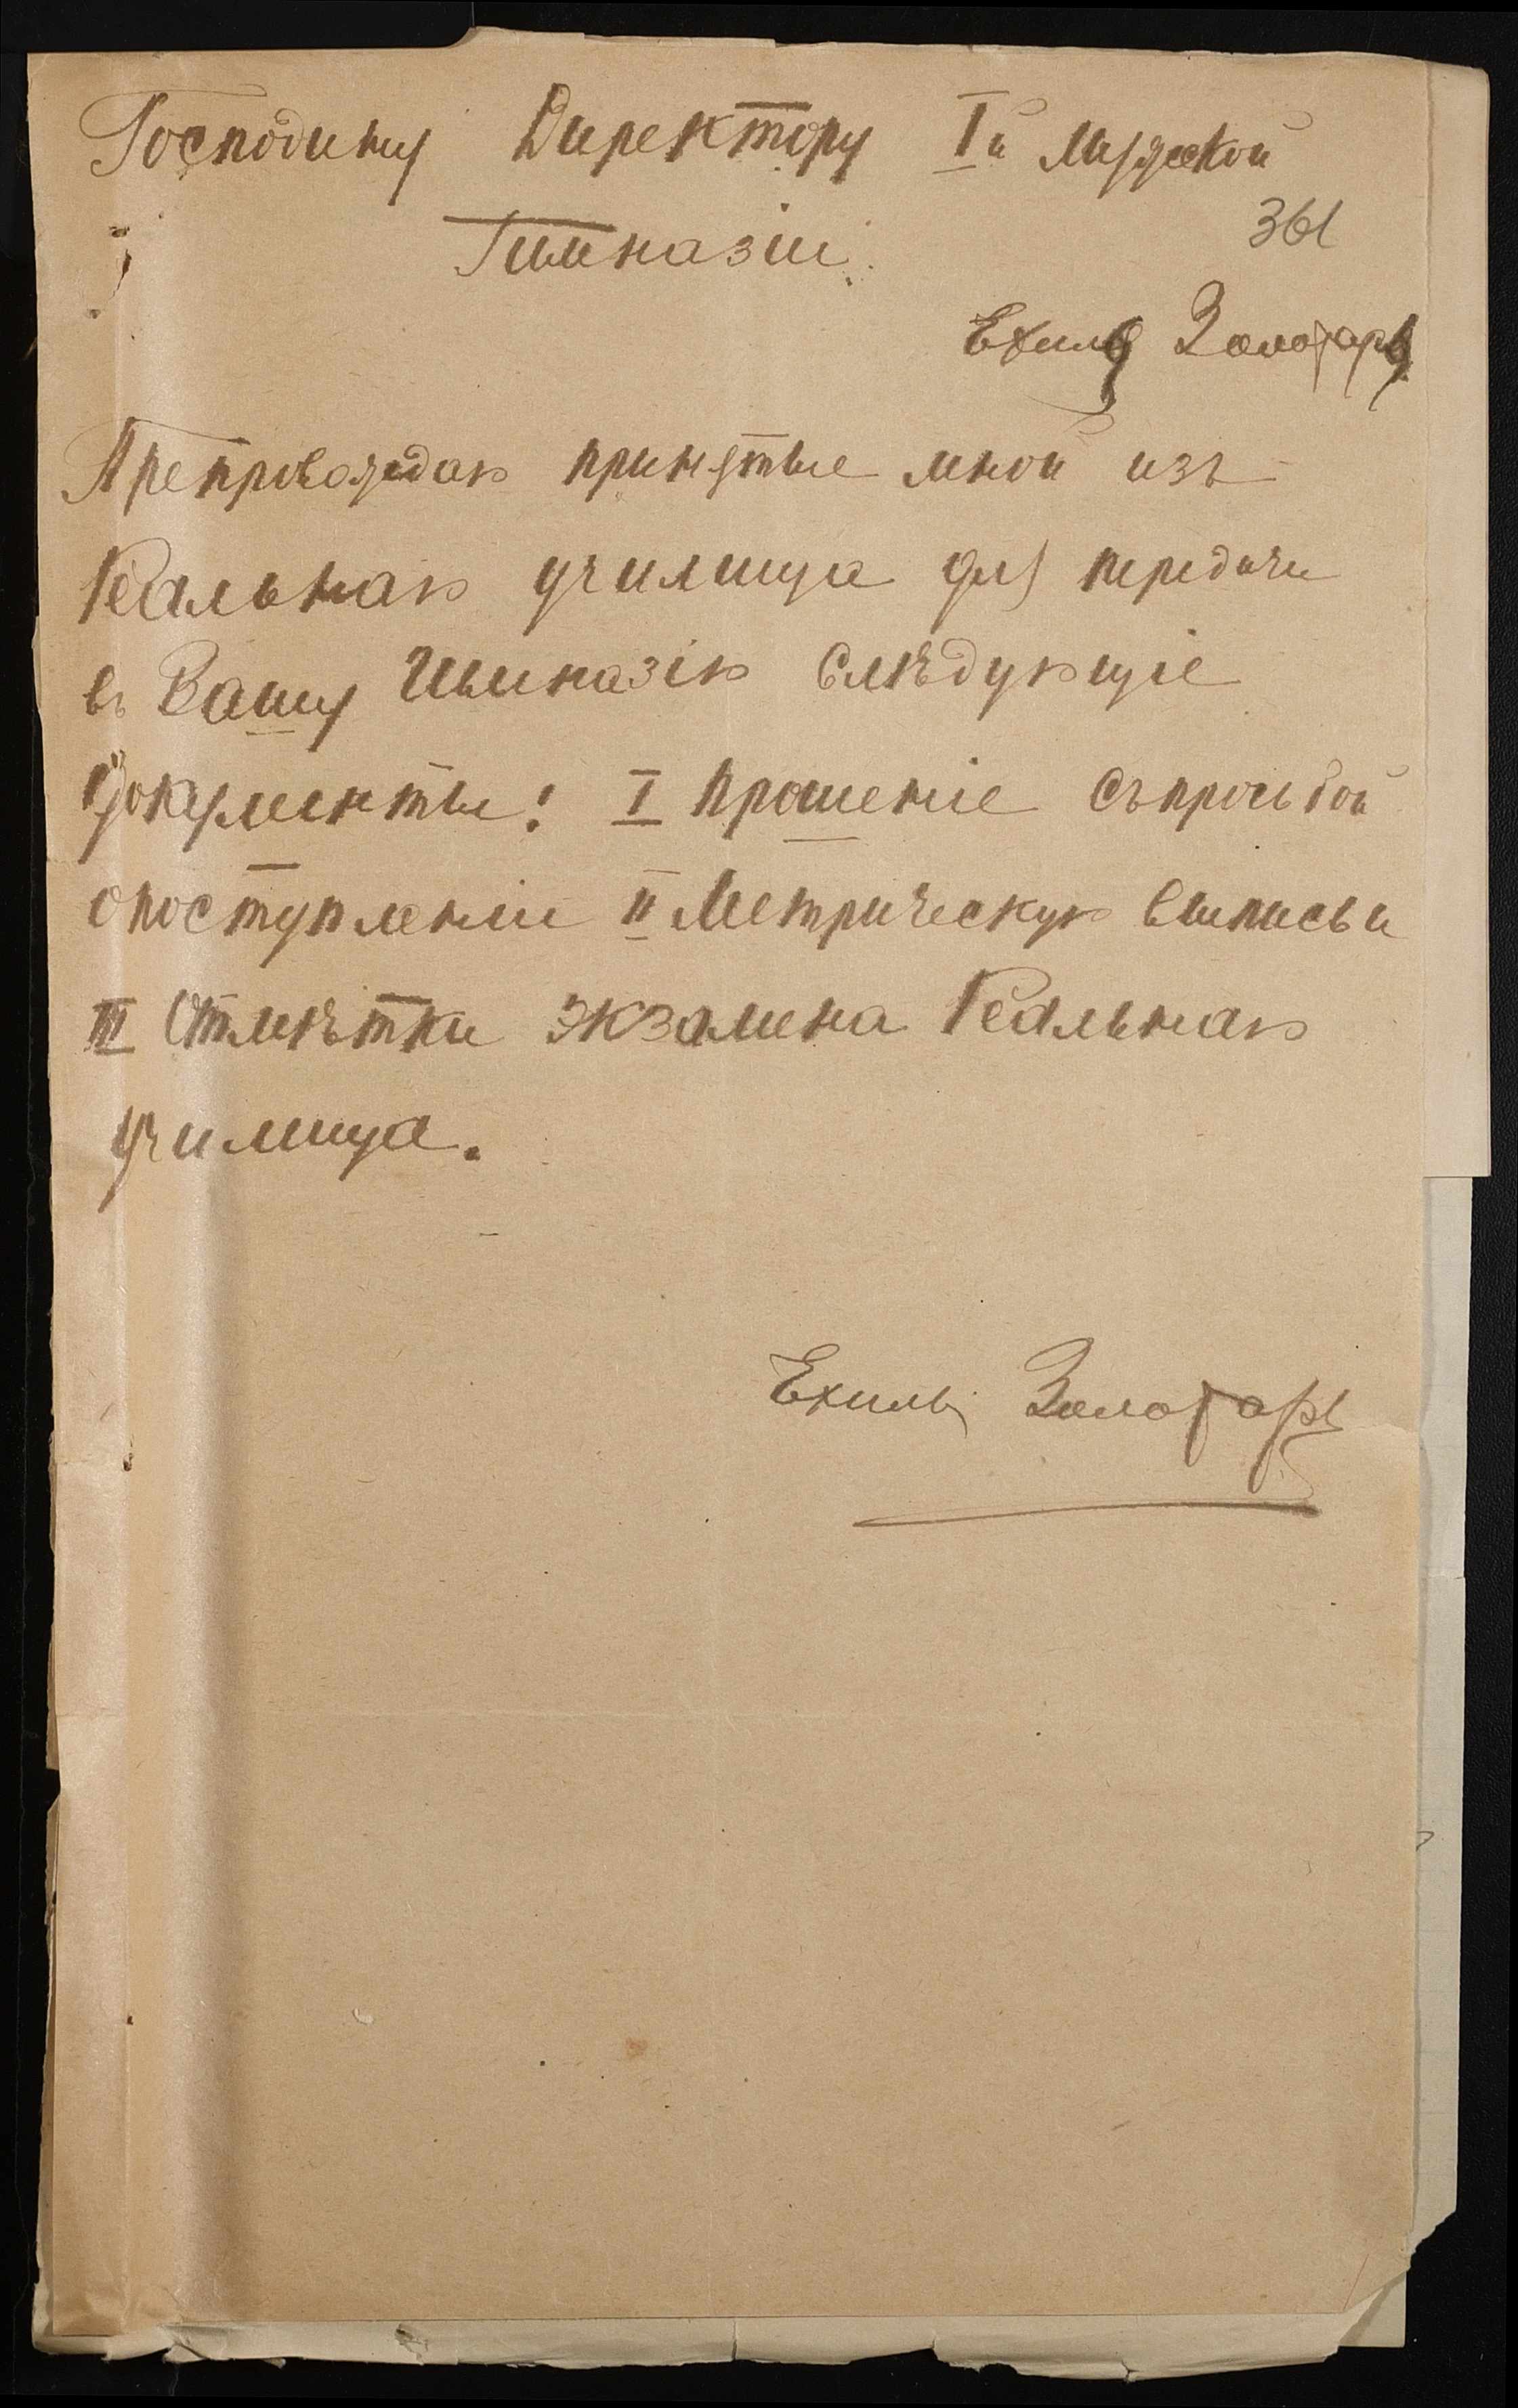 Господину Директору Iй Мужской
Гимназіи.
361
Ехиля Золотаря
Препровождаю принятые мной изъ
Реальнаю училища для передачи
въ Вашу Гимназію слѣдующіе
документы: I прошеніе съпросьбой
опоступленіи II Метрическую выпись и
III Отмѣтки экзамена Реальнаю
училища.
Ехиль Золотарь